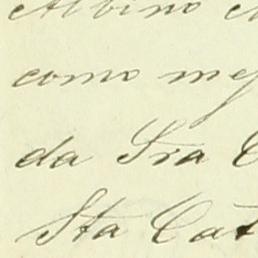 Albino
como
da Sra
Sta Cat